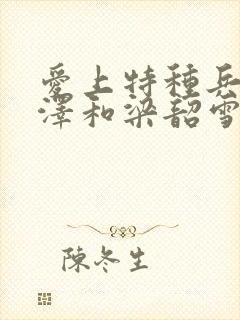 愛上特種兵
澤和梁韶雪
陳冬生